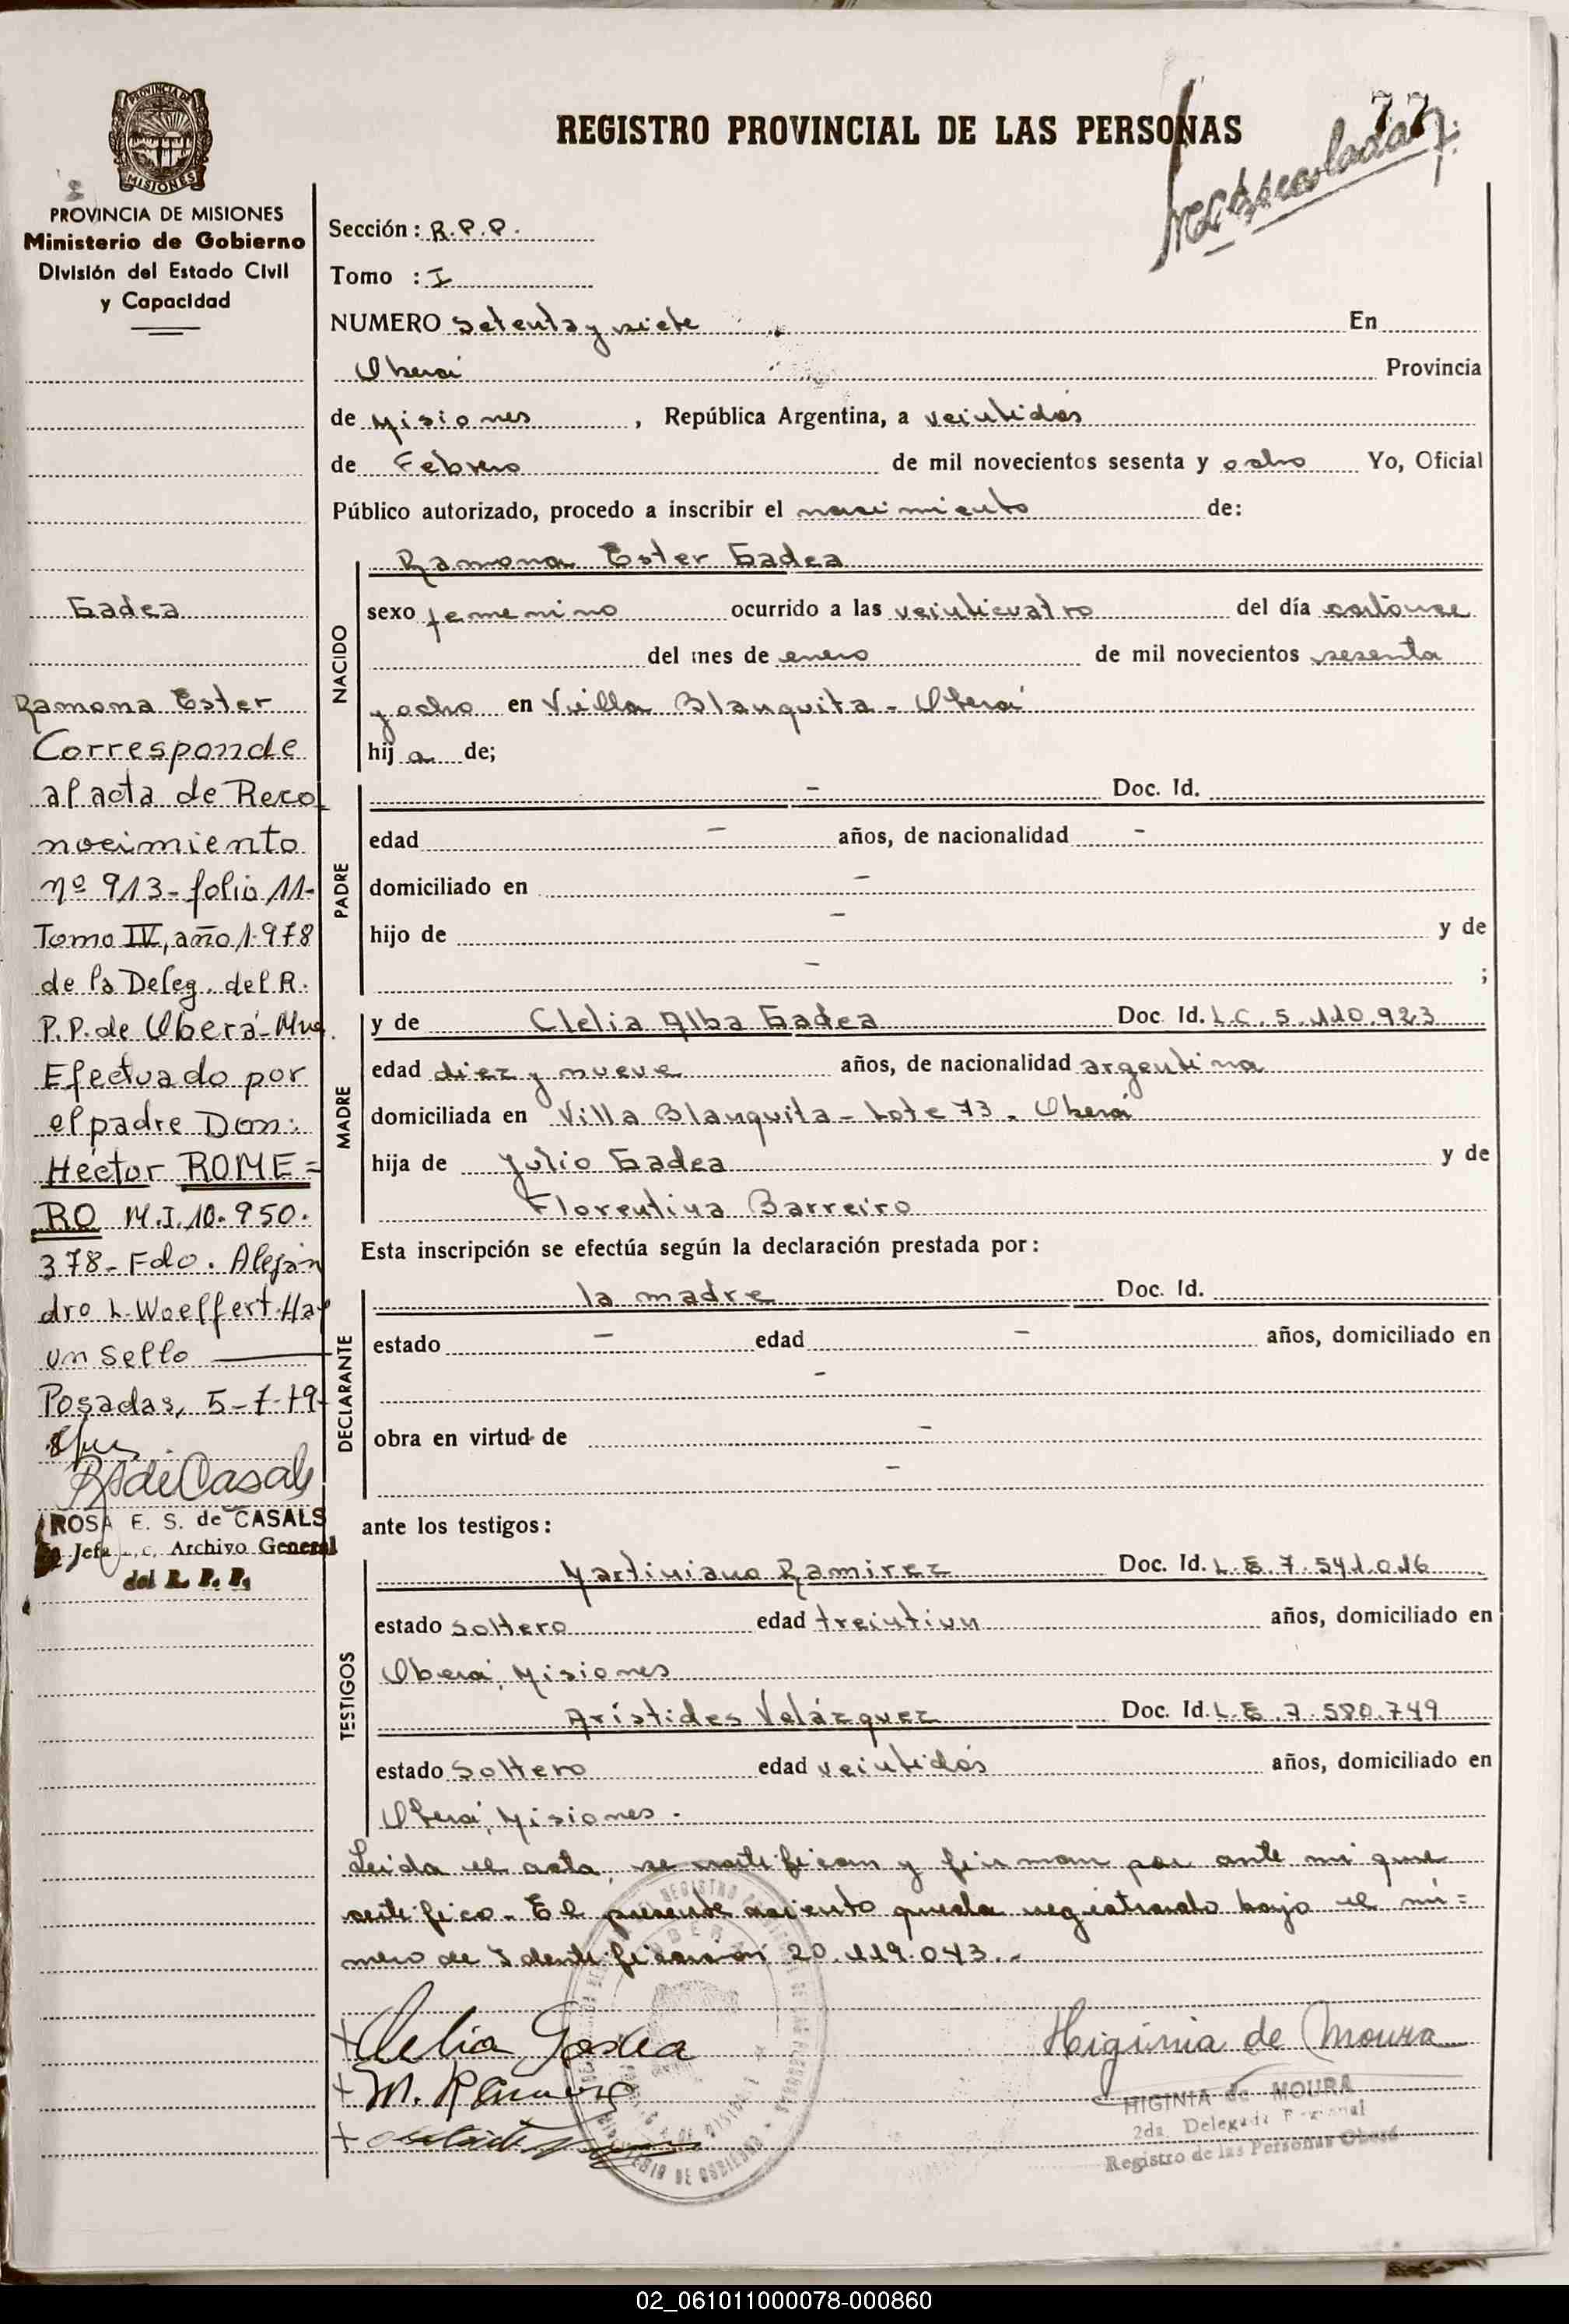 77
Matriculada
PROVINCIA DE MISIONES
Ministerio de Gobierno
División del Estado Civil
y Capacidad
REGISTRO PROVINCIAL DE LAS PERSONAS
Sección: R.P.P.
Tomo : I
NUMERO setenta y siete En
Oberá Provincia
de Misiones, República Argentina, a veintidós
de Febrero de mil novecientos sesenta y ocho Yo, Oficial
Público autorizado, procedo a inscribir el nacimiento de:
NACIDO
Ramona Ester Gadea
sexo femenino ocurrido a las veinticuatro del día catorce
del mes de enero de mil novecientos sesenta
y ocho en Villa Blanquita - Oberá
hij a de;
PADRE
- Doc. Id.
edad - años, de nacionalidad -
domiciliado en -
hijo de - y de
- ;
MADRE
y de Clelia Alba Gadea Doc. Id. L.C. 5.110.923
edad diez y nueve años, de nacionalidad argentina
domiciliada en Villa Blanquita - Lote 73 - Oberá
hija de Julio Gadea y de
Florentina Barreiro
Esta inscripción se efectúa según la declaración prestada por:
DECLARANTE
la madre Doc. Id.
estado - edad - años, domiciliado en
-
obra en virtud de -
-
ante los testigos:
TESTIGOS
Martiniano Ramirez Doc. Id. L.E. 7.541.016
estado soltero edad treintiun años, domiciliado en
Oberá, Misiones
Arístides Velázquez Doc. Id. L.E. 7.580.749
estado soltero edad veintidós años, domiciliado en
Oberá, Misiones.
Leída el acta, se ratifican y firman por ante mi que
certifico - El presente asiento queda registrado bajo el nú=
mero de Identificación 20.119.043.-
Clelia Gadea
M. Ramirez
Higinia de Moura
HIGINIA de MOURA
2da. Delegada
Registro de las Personas Oberá
Gadea
Ramona Ester
Corresponde
al acta de Reco_
nocimiento
nº 913- folio 11-
Tomo IV, año 1.978
de la Deleg. del R.
P.P. de Oberá-Mnes.
Efectuado por
el padre Don:
Héctor ROME=
RO M.I. 10.950.
378- Fdo. Alejan
dro L. Woelffert. Hay
un sello
Posadas, 5-7-79-
R S de Casals
ROSA E. S. de CASALS
Jefa Archivo General
del R. P. P.
02_061011000078-000860